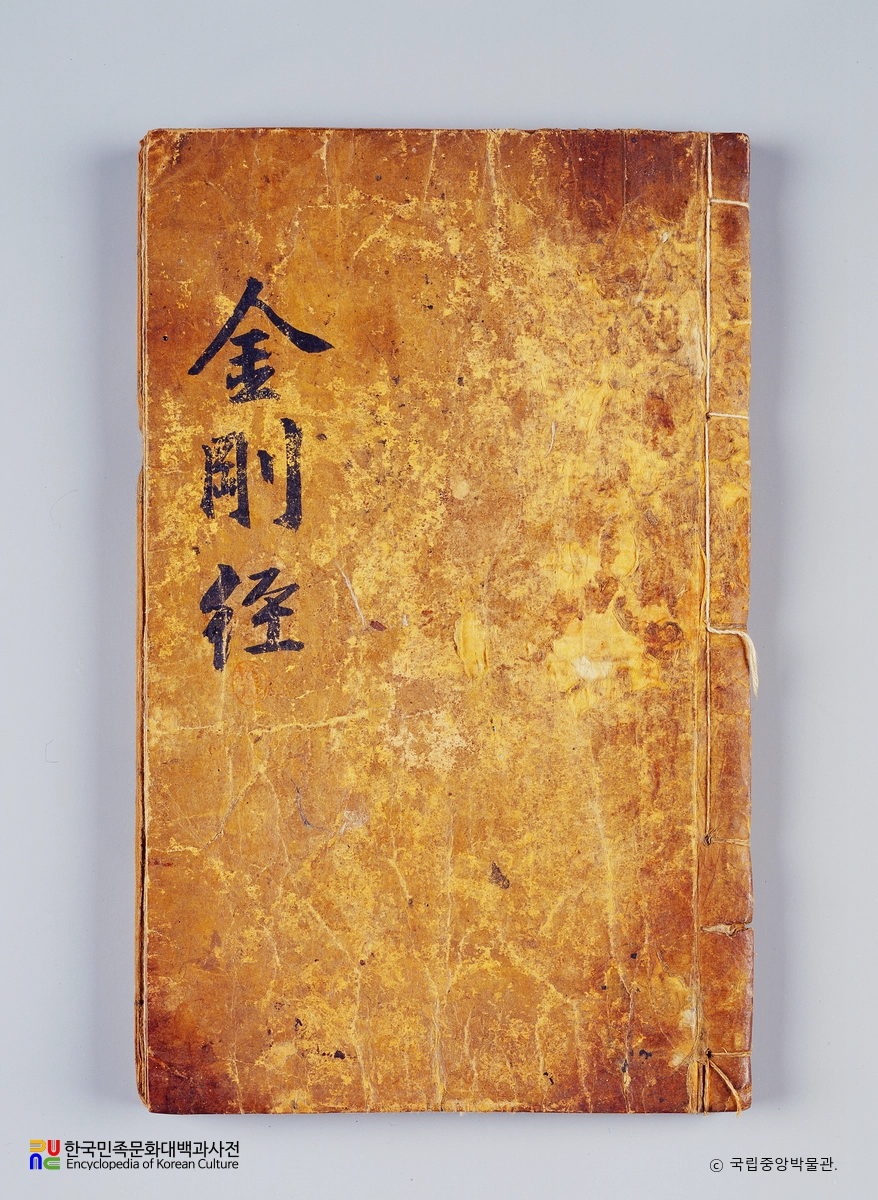 金
剛
経
한국민족문화대백과사전
Encyclopedia of Korean Culture
ⓒ 국립중앙박물관.